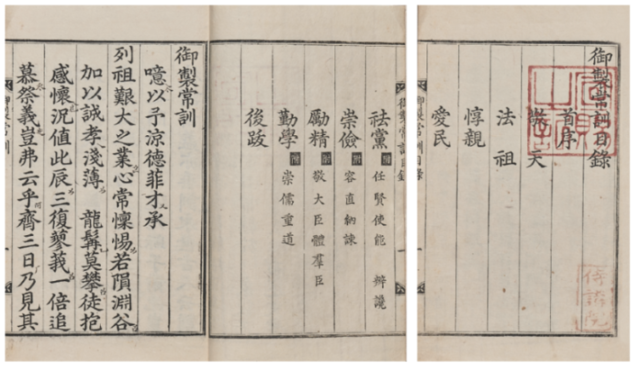 御製常訓目錄
首序
敬天
法祖
惇親
愛民
御製常訓目錄
祛黨 附 任賢使能 辨讒
崇儉 附 容直納諫
勵精 附 敬大臣 體羣臣
勤學 附 崇儒重道
後跋
御製常訓目錄
御製常訓
噫以予涼德菲才承
列祖艱大之業心常懍惕若隕淵谷
加以誠孝淺薄 龍髯莫攀徒抱
感懷況値此辰三復蓼莪一倍追
慕祭義豈弗云乎齊三日乃見其
御製常訓